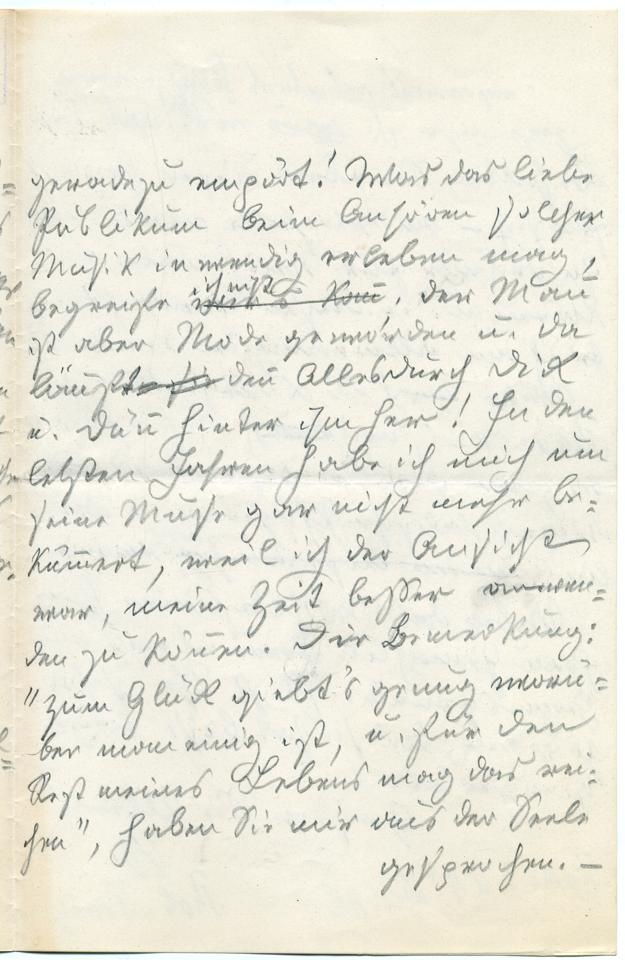 geradezu empört! Was das liebe
Publikum beim Anhören solcher
Musik inwendig erleben mag,
begreife ich nicht. Der Mañ
ist aber Mode geworden u. da
läuft deñ Alles durch Dick
u. Düñ hinter ihm her! In den
letzten Jahren habe ich mich um
seine Muse gar nicht mehr be=
kümmert, weil ich der Ansicht
war, meine Zeit besser anwen=
den zu köñen. Die Bemerkung:
"zum Glück giebt's genug worü=
ber man einig ist, u. für den
Rest meines Lebens mag das rei=
chen", haben Sie mir aus der Seele
gesprochen. —